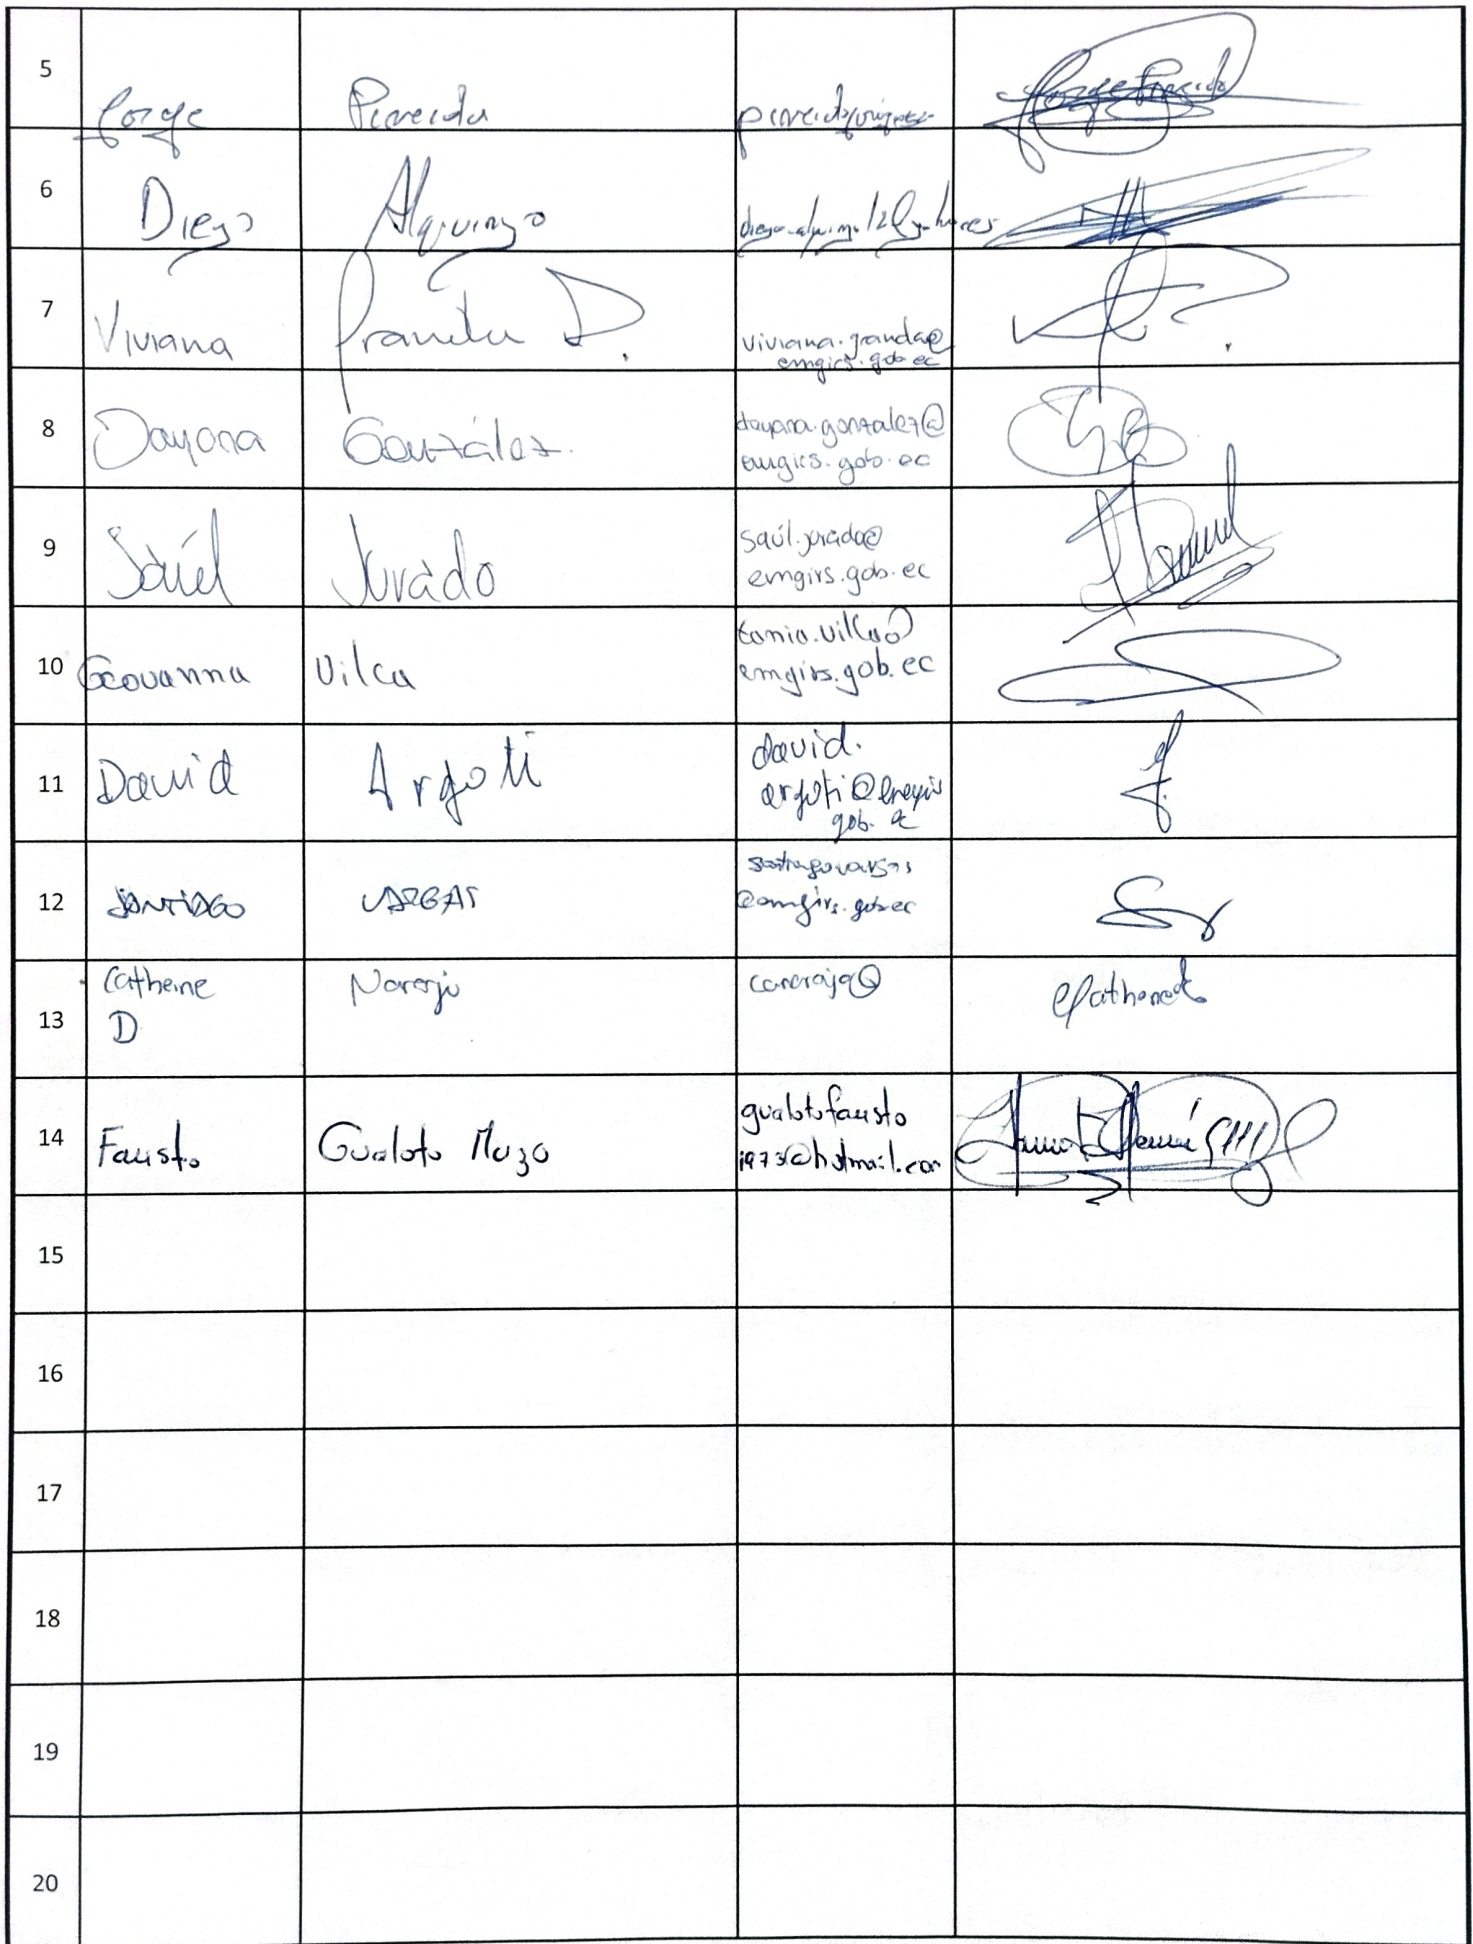 5
Jorge Pineida
6
Diego Alquinga
7
Viviana Granda D.
viviana.granda@
emgirs.gob.ec
8
Dayana González
dayana.gonzalez@
emgirs.gob.ec
9
Saúl Jurado
saúl.jurado@
emgirs.gob.ec
10
Geovanna Vilca
tania.vilca@
emgirs.gob.ec
11
David Argoti
david.
argoti@emgirs
gob.ec
12
SANTIAGO VARGAS
@emgirs.gob.ec
13
Catherine Naranjo
D
14
Fausto Gualoto Muzo
gualotofausto
1973@hotmail.com
15
16
17
18
19
20